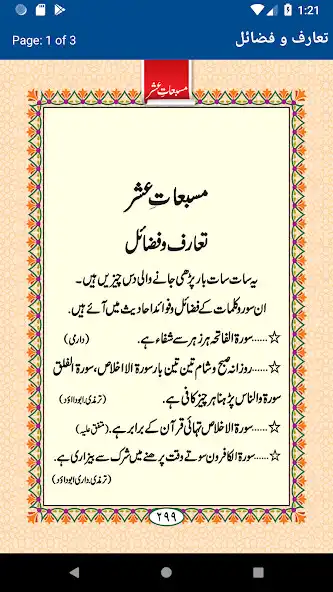 1:21
Page: 1 of 3
تعارف و فضائل
مسبعاتِ عشر
مسبعاتِ عشر
تعارف و فضائل
یہ سات سات بار پڑھی جانے والی دس چیزیں ہیں۔
ان سور و کلمات کے فضائل و فوائد احادیث میں آئے ہیں۔
☆......سورۃ الفاتحہ ہر زہر سے شفاء ہے۔ (دارمی)
☆......روزانہ صبح و شام تین تین بار سورۃ الاخلاص، سورۃ الفلق
سورۃ والناس پڑھنا ہر چیز کافی ہے۔ (ترمذی، ابوداؤد)
☆......سورۃ الاخلاص تہائی قرآن کے برابر ہے۔ (متفق علیہ)
☆......سورۃ الکافرون سوتے وقت پڑھنے میں شرک سے بیزاری ہے۔
(ترمذی، دارمی، ابوداؤد)
۲۹۹